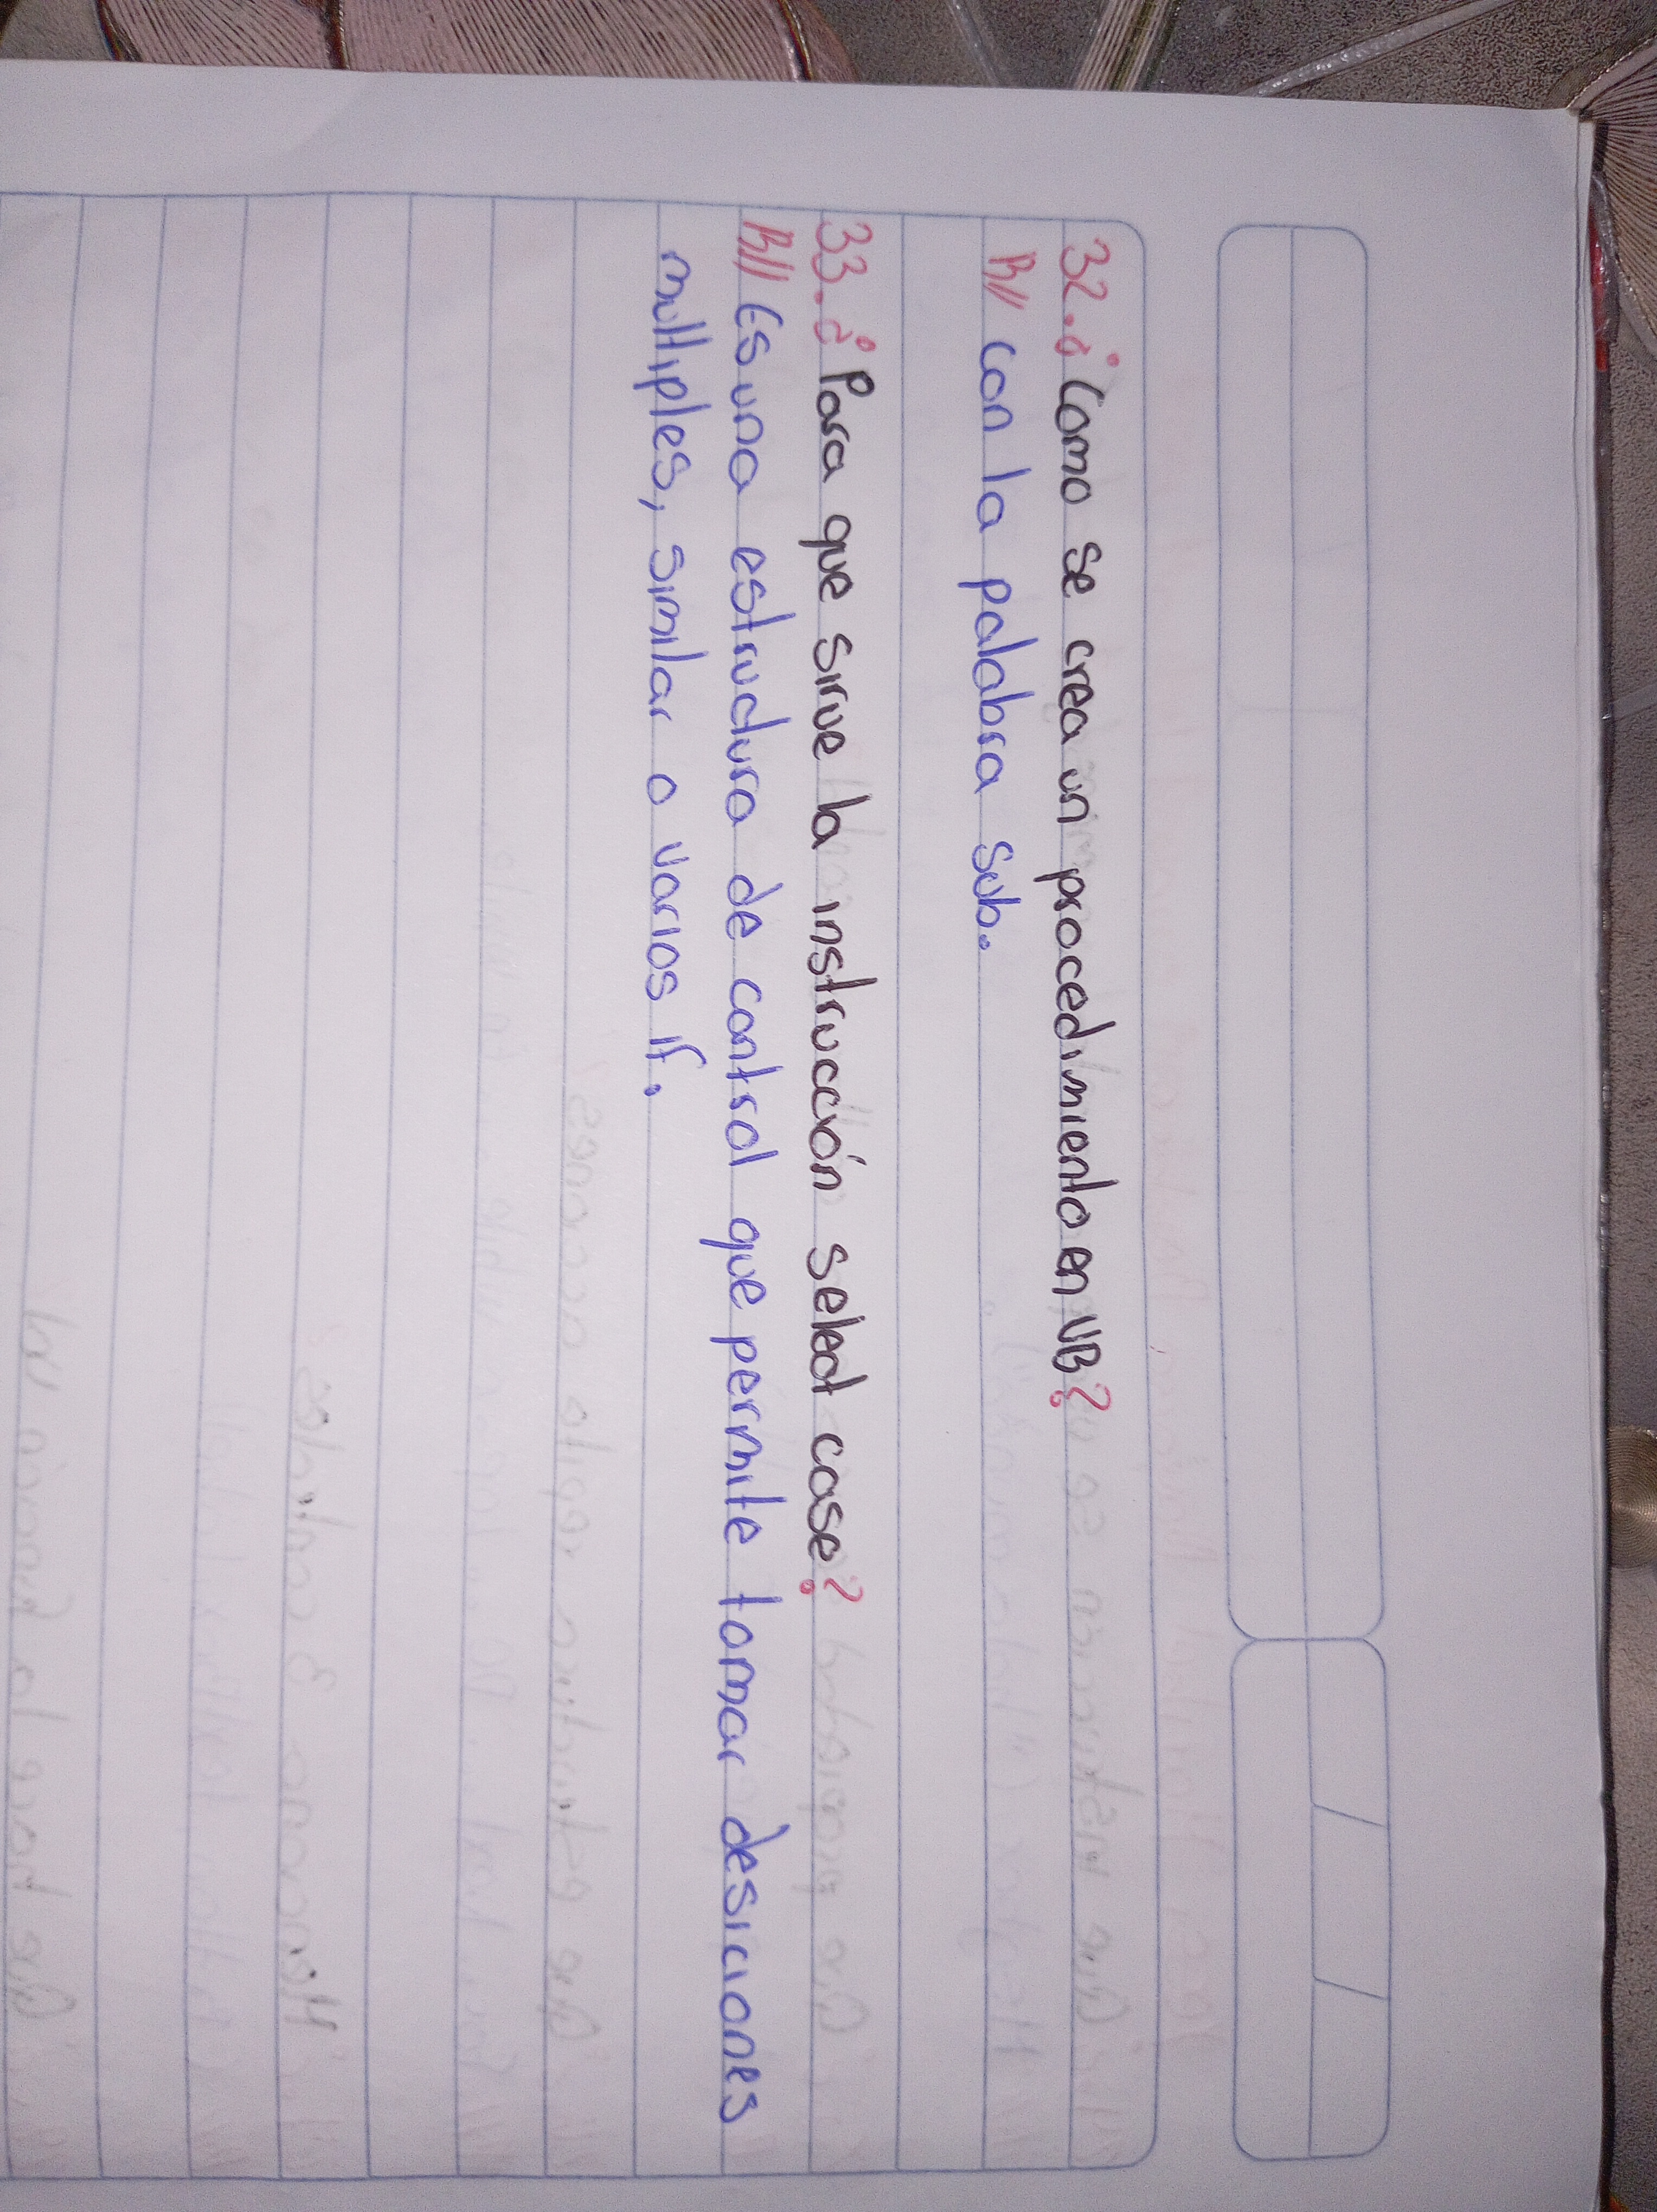 32. ¿Como se crea un procedimiento en VB?
R// con la palabra sub.
33. ¿Para que sirve la instrucción select case?
R// Es una estructura de control que permite tomar desiciones
multiples, similar a varios if.